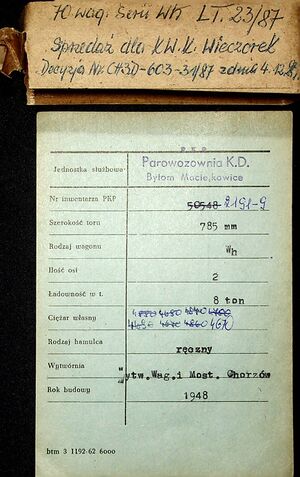 10 wag. Serii Wh LT. 23/87
Sprzedaż dla K.W.K. Wieczorek
Decyzja Nr. CH3D-603-31/87 z dnia 4.12.87
P K P
Jednostka służbowa Parowozownia K.D.
Bytom Maciejkowice
Nr inwentarza PKP 50548 2191-9
Szerokość toru 785 mm
Rodzaj wagonu Wh
Ilość osi 2
Ładowność w t. 8 ton
Ciężar własny 4680
4860 4670
Rodzaj hamulca ręczny
Wytwórnia Wytw.Wag.i Most. Chorzów
Rok budowy 1948
btm 3 1192-62 6000